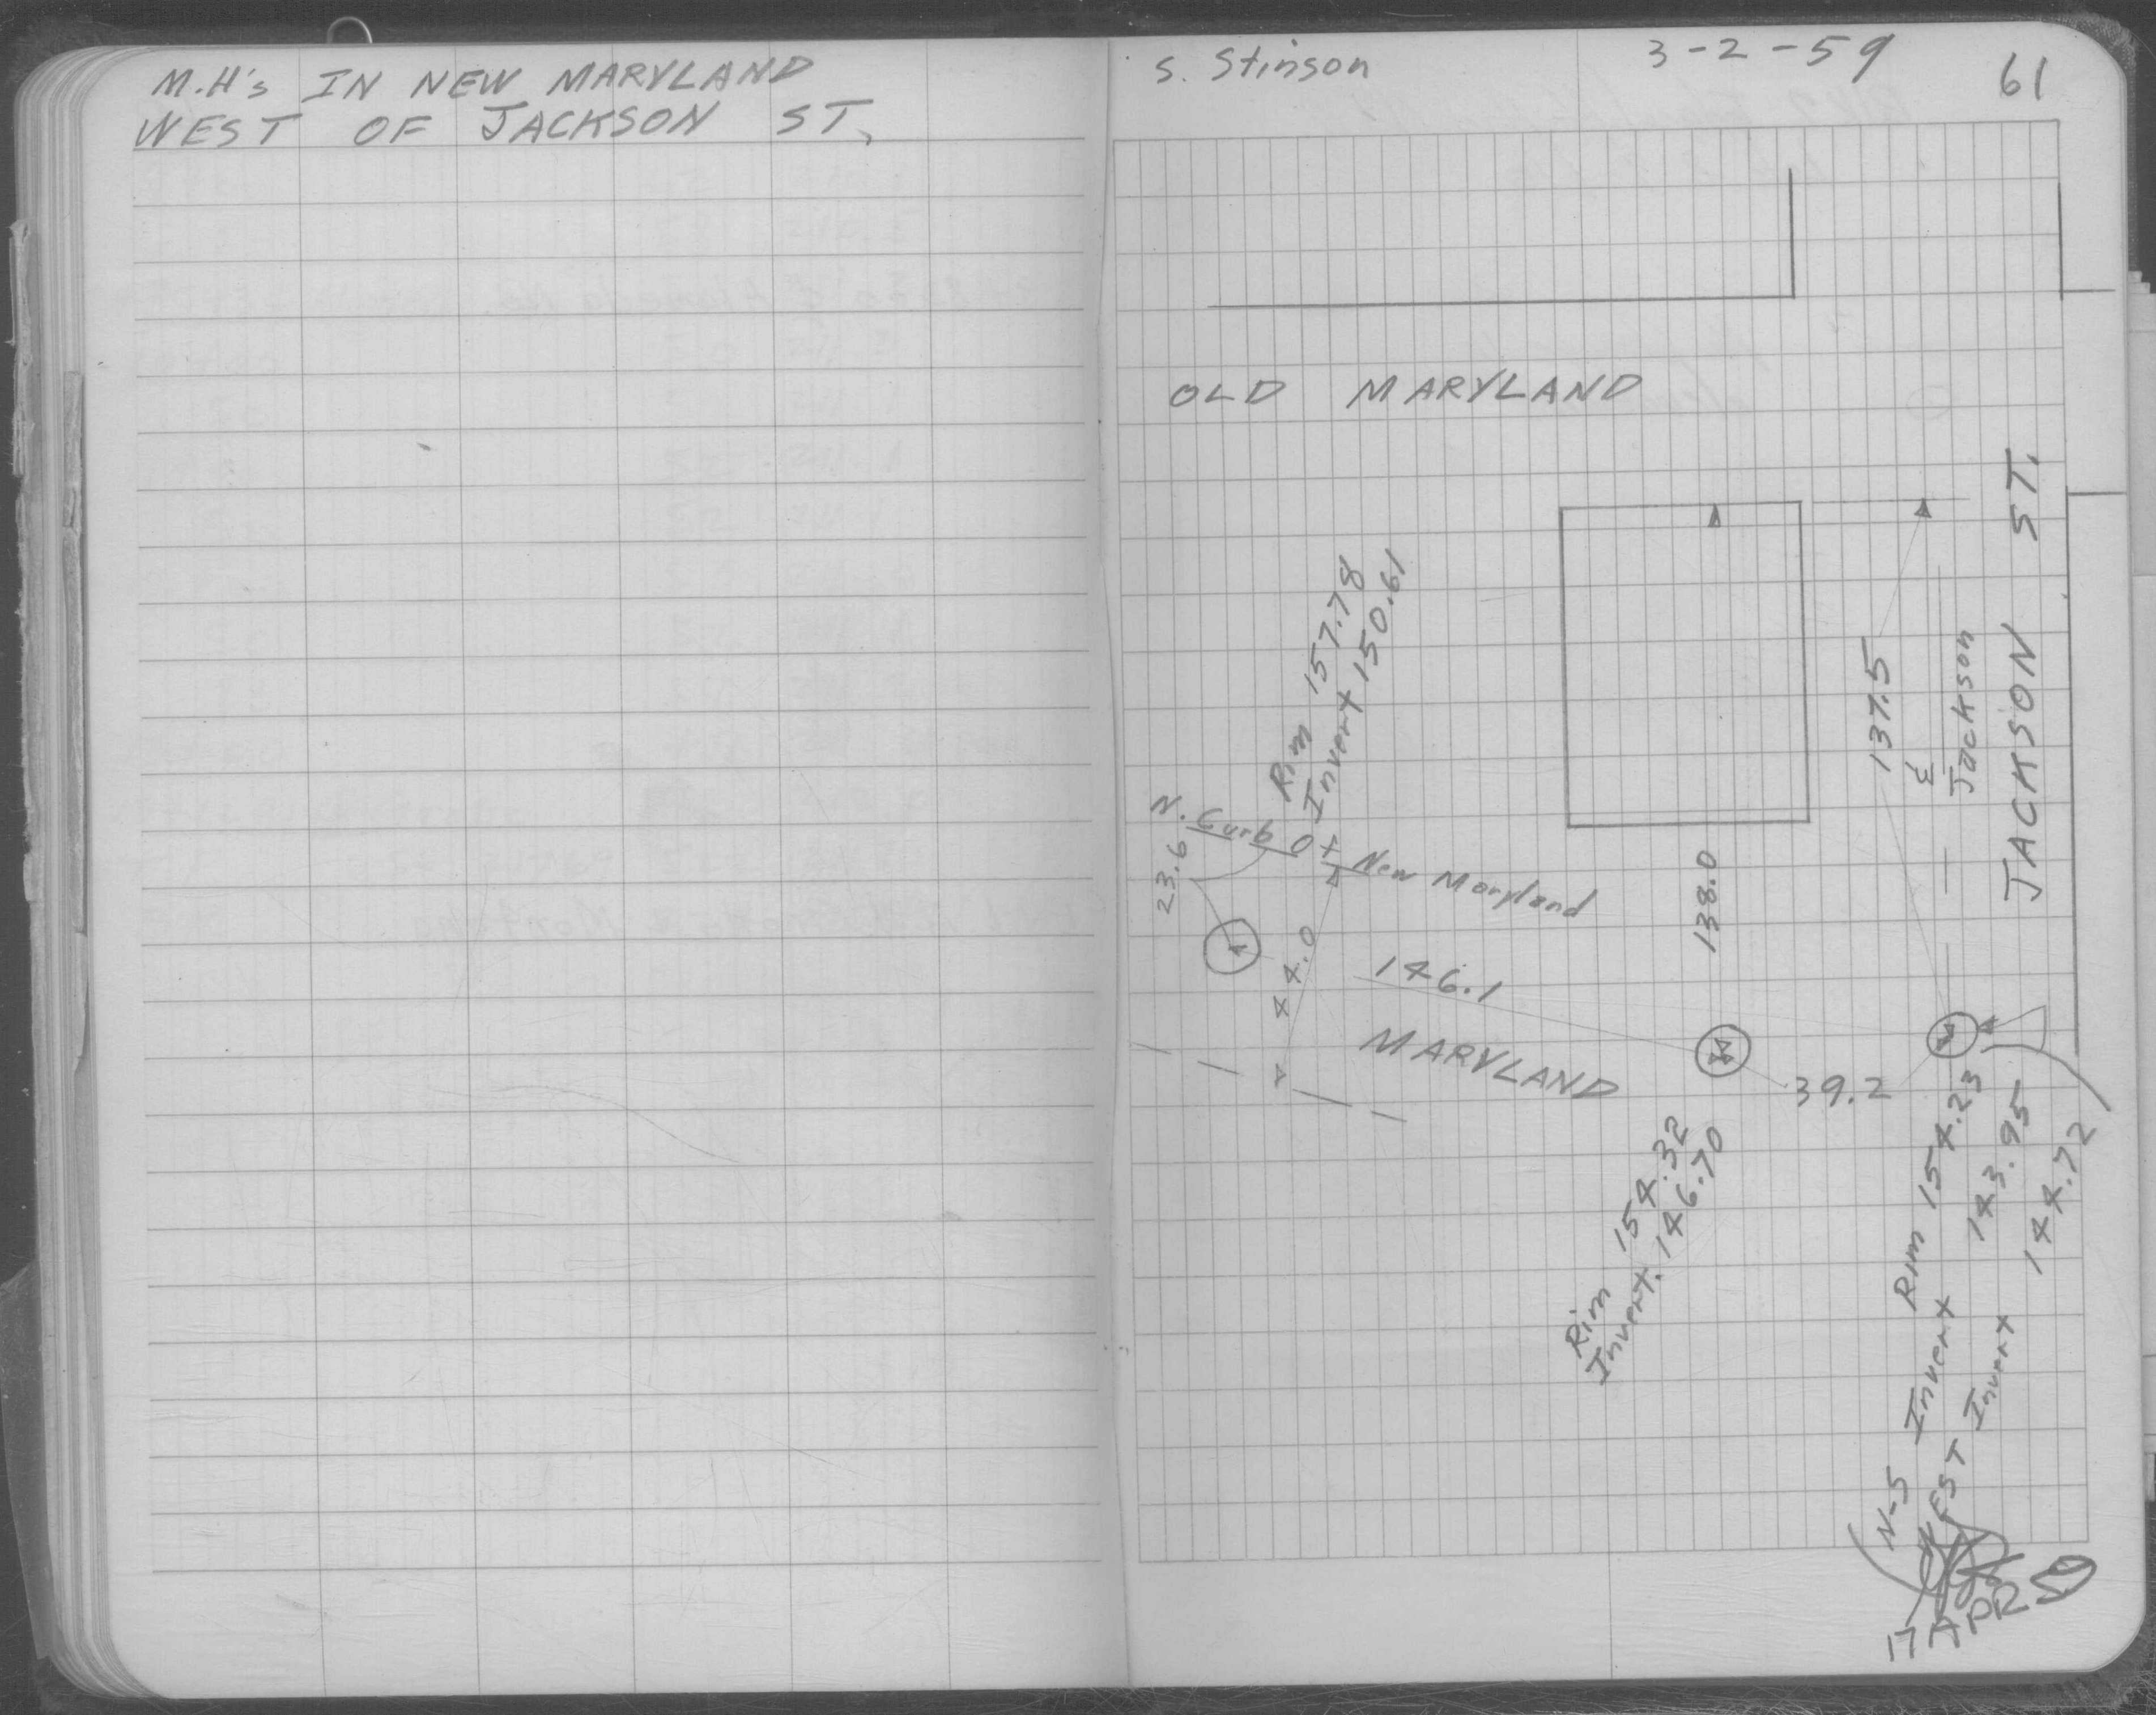 M.H's IN NEW MARYLAND
WEST OF JACKSON ST.
S. Stinson 3-2-59 61
OLD MARYLAND
JACKSON ST.
Rim 157.78
Invert 150.61
137.5
Jackson
N. Curb
New Maryland
23.6
138.0
44.0
146.1
MARYLAND
39.2
Rim 154.32
Invert. 146.70
Rim 154.23
N-S Invert 143.95
WEST Invert 144.72
17 APR 59